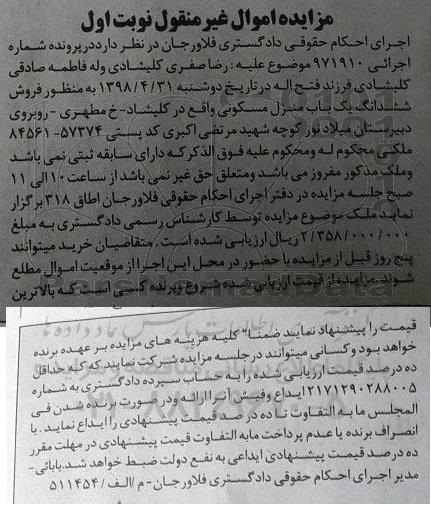 مزایده اموال غیر منقول نوبت اول
اجرای احکام حقوقی دادگستری فلاورجان در نظر دارد در پرونده شماره
اجرائی ۹۷۱۹۱۰ موضوع علیه : رضا صفری کلیشادی وله فاطمه صادقی
کلیشادی فرزند فتح اله در تاریخ دوشنبه ۱۳۹۸/۴/۳۱ به منظور فروش
ششدانگ یک باب منزل مسکونی واقع در کلیشاد- خ مطهری - روبروی
دبیرستان میلاد نور کوچه شهید مرتضی اکبری کد پستی ۵۷۳۷۴- ۸۴۵۶۱
ملکی محکوم له ومحکوم علیه فوق الذکر که دارای سابقه ثبتی نمی باشد
وملک مذکور مفروز می باشد ومتعلق حق غیر نمی باشد از ساعت ۱۰ الی ۱۱
صبح جلسه مزایده در دفتر اجرای احکام حقوقی فلاورجان اطاق ۳۱۸ برگزار
نماید ملک موضوع مزایده توسط کارشناس رسمی دادگستری به مبلغ
۲/۳۵۸/۰۰۰/۰۰۰ ریال ارزیابی شده است. متقاضیان خرید میتوانند
پنج روز قبل از مزایده با حضور در محل این اجرا از موقعیت اموال مطلع
شوند.مزایده از قیمت ارزیابی شده شروع وبرنده کسی است که بالاترین
قیمت را پیشنهاد نماید ضمنا" کلیه هزینه های مزایده بر عهده برنده
خواهد بود و کسانی میتوانند در جلسه مزایده شرکت نمایند که که حداقل
ده درصد قیمت ارزیابی شده را به حساب سپرده دادگستری به شماره
۲۱۷۱۲۹۰۲۸۸۰۰۵ ایداع وفیش آنرا ارائه ودر صورت برنده شدن فی
المجلس ما به التفاوت تا ده در صد قیمت پیشنهادی را ایداع نماید . با
انصراف برنده یا عدم پرداخت مابه التفاوت قیمت پیشنهادی در مهلت مقرر
ده درصد قیمت پیشنهادی ایداعی به نفع دولت ضبط خواهد شد.بابائی-
مدیر اجرای احکام حقوقی دادگستری فلاورجان - م /الف/ ۵۱۱۴۵۴